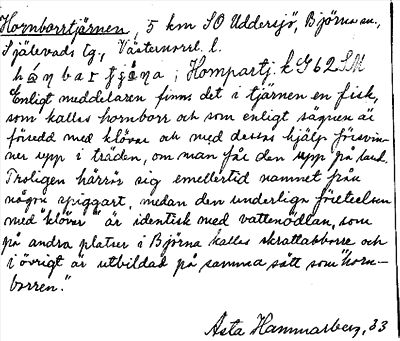 Hornborrtjärnen, 5 km SO Uddersjö, Björna sn,
Själevads tg., Västernorrl. l.
Kompartj. k G62 SM
Enligt meddelaren finns det i tjärnen en fisk,
som kallas hornborr och som enligt sägnen är
försedd med klövar och med dessas hjälp försvin-
ner upp i träden, om man får den upp på land.
Troligen härrör sig emellertid namnet från
någon spiggart, medan den underliga företeelsen
med "klövar" är identisk med vattenödlan, som
på andra platser i Björna kallas skrattabborre och
i övrigt är utbildad på samma sätt som "horn-
borren."
Asta Hammarberg, 33